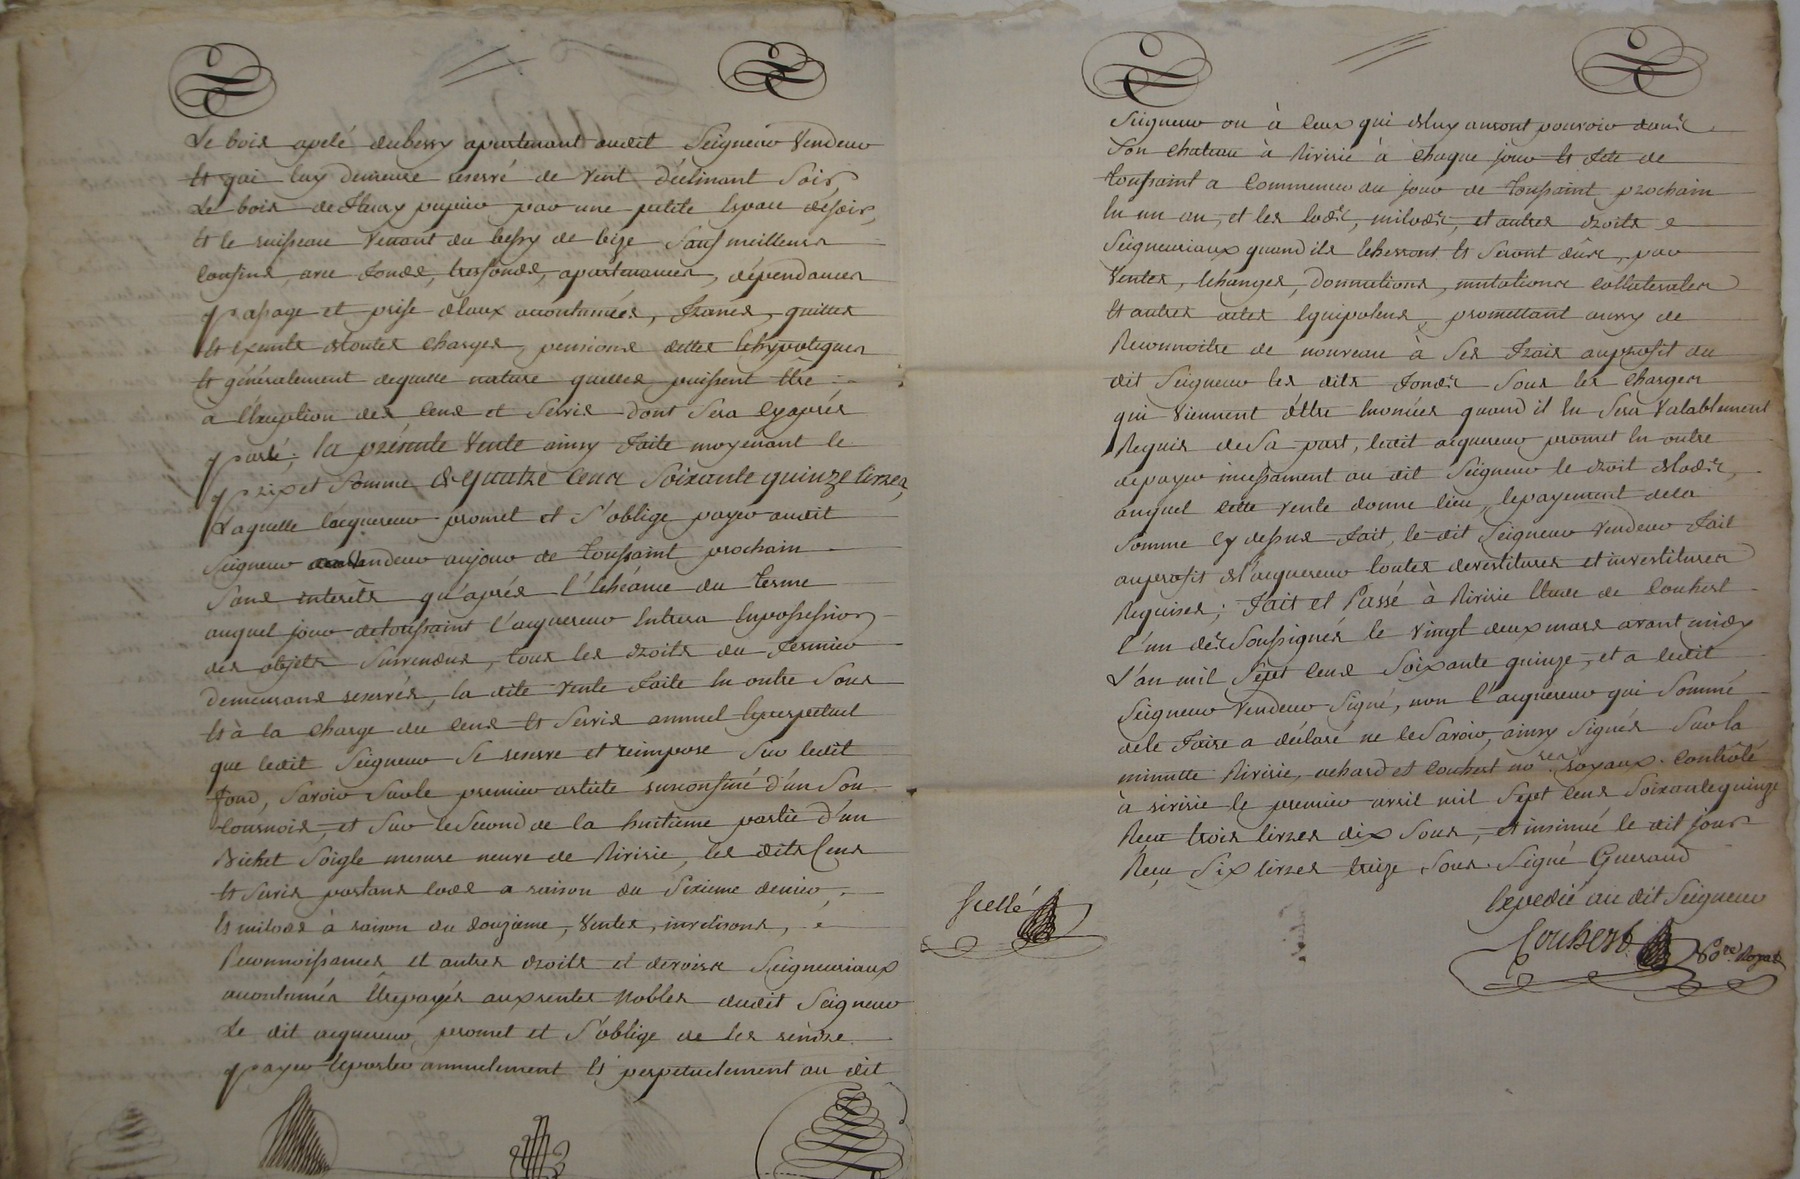 Le bois apelé duberry apartenant audit Seigneur Vendeur
Et qui luy demeure reservé de vent déclinant Soir,
Le bois de pupier par une petite Espace desoir,
Et le ruisseau Venant du de bize Sauf meilleurs
Confins, avec fonds, tresfonds, apartenances, dépendances
passage et prise d'eaux acoutumées, francs, quittes
Et Exempts detoutes charges, pensions dettes Ehypoteques
Et généralement dequelle nature quelles puissent Etre
a l'Exception des Cens et Servis dont Sera Cyaprés
parlé; la présente Vente ainsy faite moyenant le
prix et Somme de quatre Cens Soixante quinze livres,
Laquelle l'acquereur promet et S'oblige payer audit
Seigneur vendeur aujour de toussaint prochain
Sans interêts qu'aprés l'Echéance du terme
auquel jour detoussaint l'acquereur Entrera Enpossession
des objets Survendus, tous les droits du fermier
demeurans reservés, la dite Vente faite En outre Sous
Et à la charge du Cens Et Servis annuel Eperpetuel
que ledit Seigneur Se reserve et reimpose Sur ledit
fond, Savoir Surle premier article susconfiné d'un Sou
tournois, et Sur leSecond de la huitieme partie d'un
Bichet Soigle mesure neuve de Ririsie, les dits Cens
Et Servis portans lods a raison du Sixieme denier,
Et milods à raison du douzieme, Ventes, investisons,
Reconnoissances et autres droits et devoirs Seigneuriaux
acoutumés Etrepayés auxrentes Nobles dudit Seigneur
Le dit acquereur promet et S'oblige de les rendre
payer Eporter annuelement Et perpetuelement au dit
Seigneur ou à Ceux qui deluy auront pouvoir dans
Son chateau à Ririsie à chaque jour Et fete de
toussaint a Commencer du jour de toussaint prochain
En un an, et les lods, milods, et autres droits
Seigneuriaux quand ils Echerront Et Seront dûs, par
Ventes, Echanges, donnations, mutations Collaterales
Et autres actes Equipolens, promettant aussy de
Reconnoitre de nouveau à Ses frais auprofit du
dit Seigneur les dits fonds Sous les charges
qui Viennent d'être Enoncées quand il En Sera Valablement
Requis deSa part, ledit acquereur promet En outre
depayer incessament au dit Seigneur le droit delods,
auquel Cette Vente donne lieu, lepayement dela
Somme Cy dessus fait, le dit Seigneur Vendeur fait
auprofit del'acquereur toutes devestitures et investitures
Requises; fait et Passé à Ririsie Etude de Coubert
l'un des Soussignés le vingt deux mars avant midy
L'an mil Sept Cens Soixante quinze, et a ledit
Seigneur Vendeur Signé, non l'acquereur qui Sommé
dele faire a déclaré ne leSavoir, ainsy Signés Sur la
minutte Ririsie, achard et Coubert nores royaux. Contrôlé
à ririsie le premier avril mil Sept Cens Soixantequinze
Recu trois livres dix Sous, et insinué le dit jour
Reçu Six livres treize Sous. Signé Gueraud
Expedié au dit Seigneur
Scellé
Coubert
Nore Royal